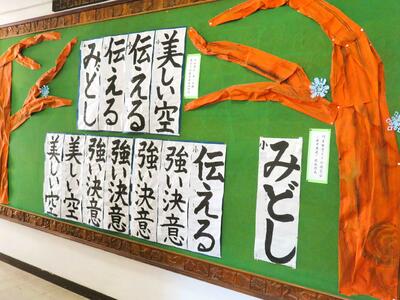 美しい空
伝える
伝える
みどし
みどし
伝える
強い決意
強い決意
強い決意
強い決意
美しい空
美しい空